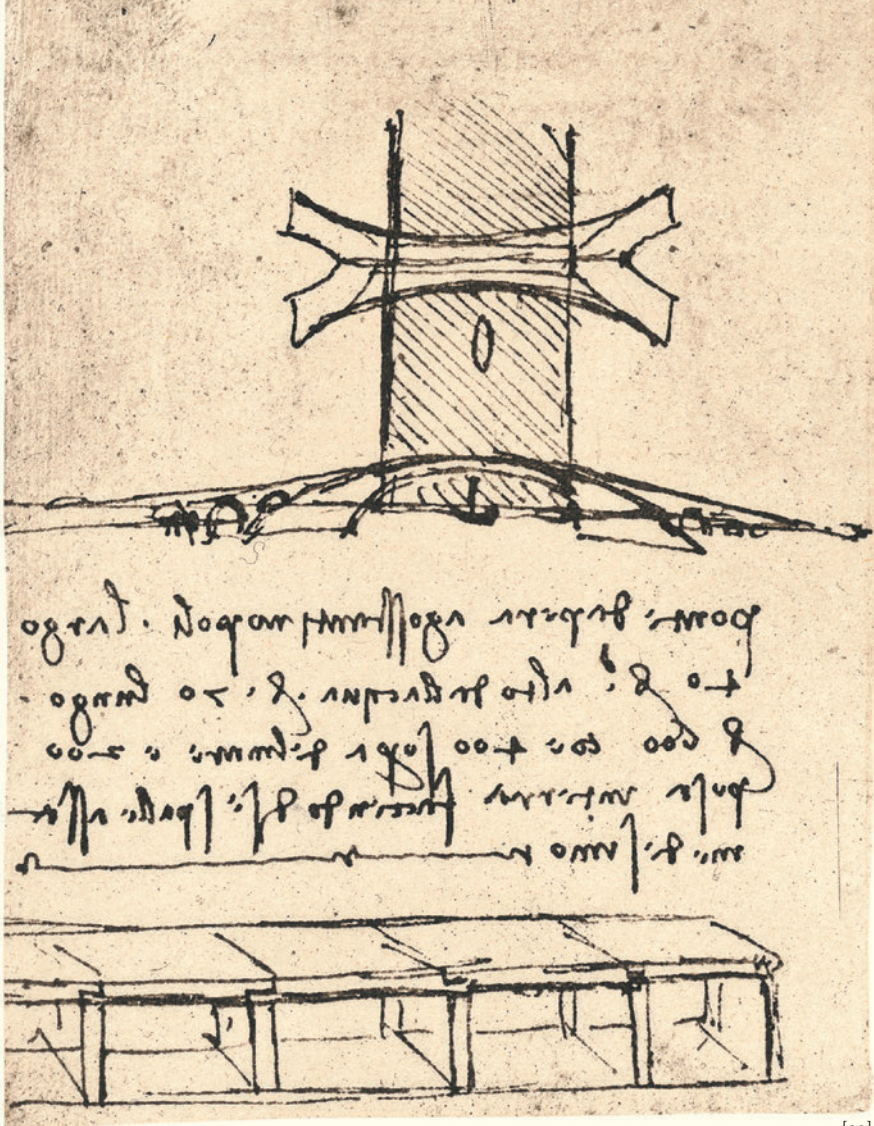 ponte dapera agosstantinopoli . largo
40 br alto dallacqua . br . 70 lungo
br 600 coe 400 sopa delmare e 200
posa interra faccendo dise spalle asse
me desimo